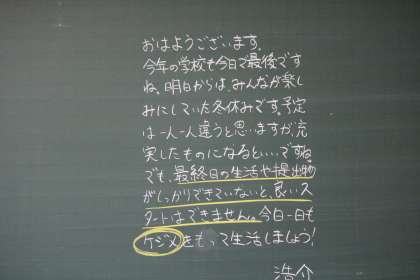 おはようございます。
今年の学校も今日で最後です
ね。明日からは、みんなが楽し
みにしていた冬休みです。予定
は一人一人違うと思いますが、充
実したものになるといいですね。
でも、最終日の生活や提出物
がしっかりできていないと、良いス
タートはできません。今日一日も
ケジメをもって生活しましょう!
浩介